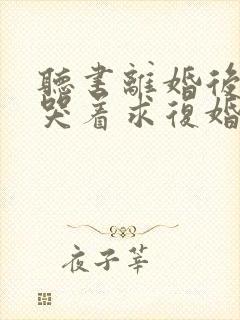 聽書離婚後
哭着求復婚
夜子莘